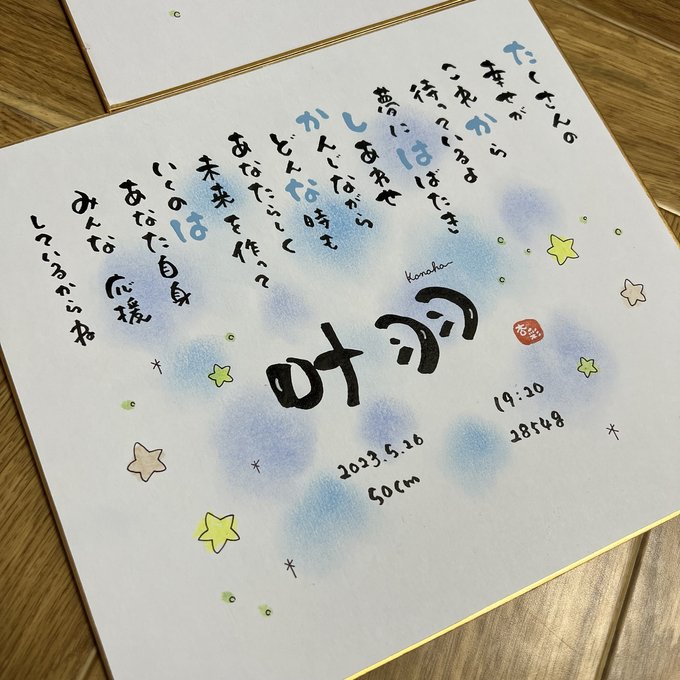 たくさんの
幸せが
これから
待っているよ
夢にはばたき
しあわせ
かんじながら
どんな時も
あなたらしく
未来を作って
いくのは
あなた自身
みんな応援
しているからね
Konoha
叶羽
2023.5.26 19:20
50cm 2854g